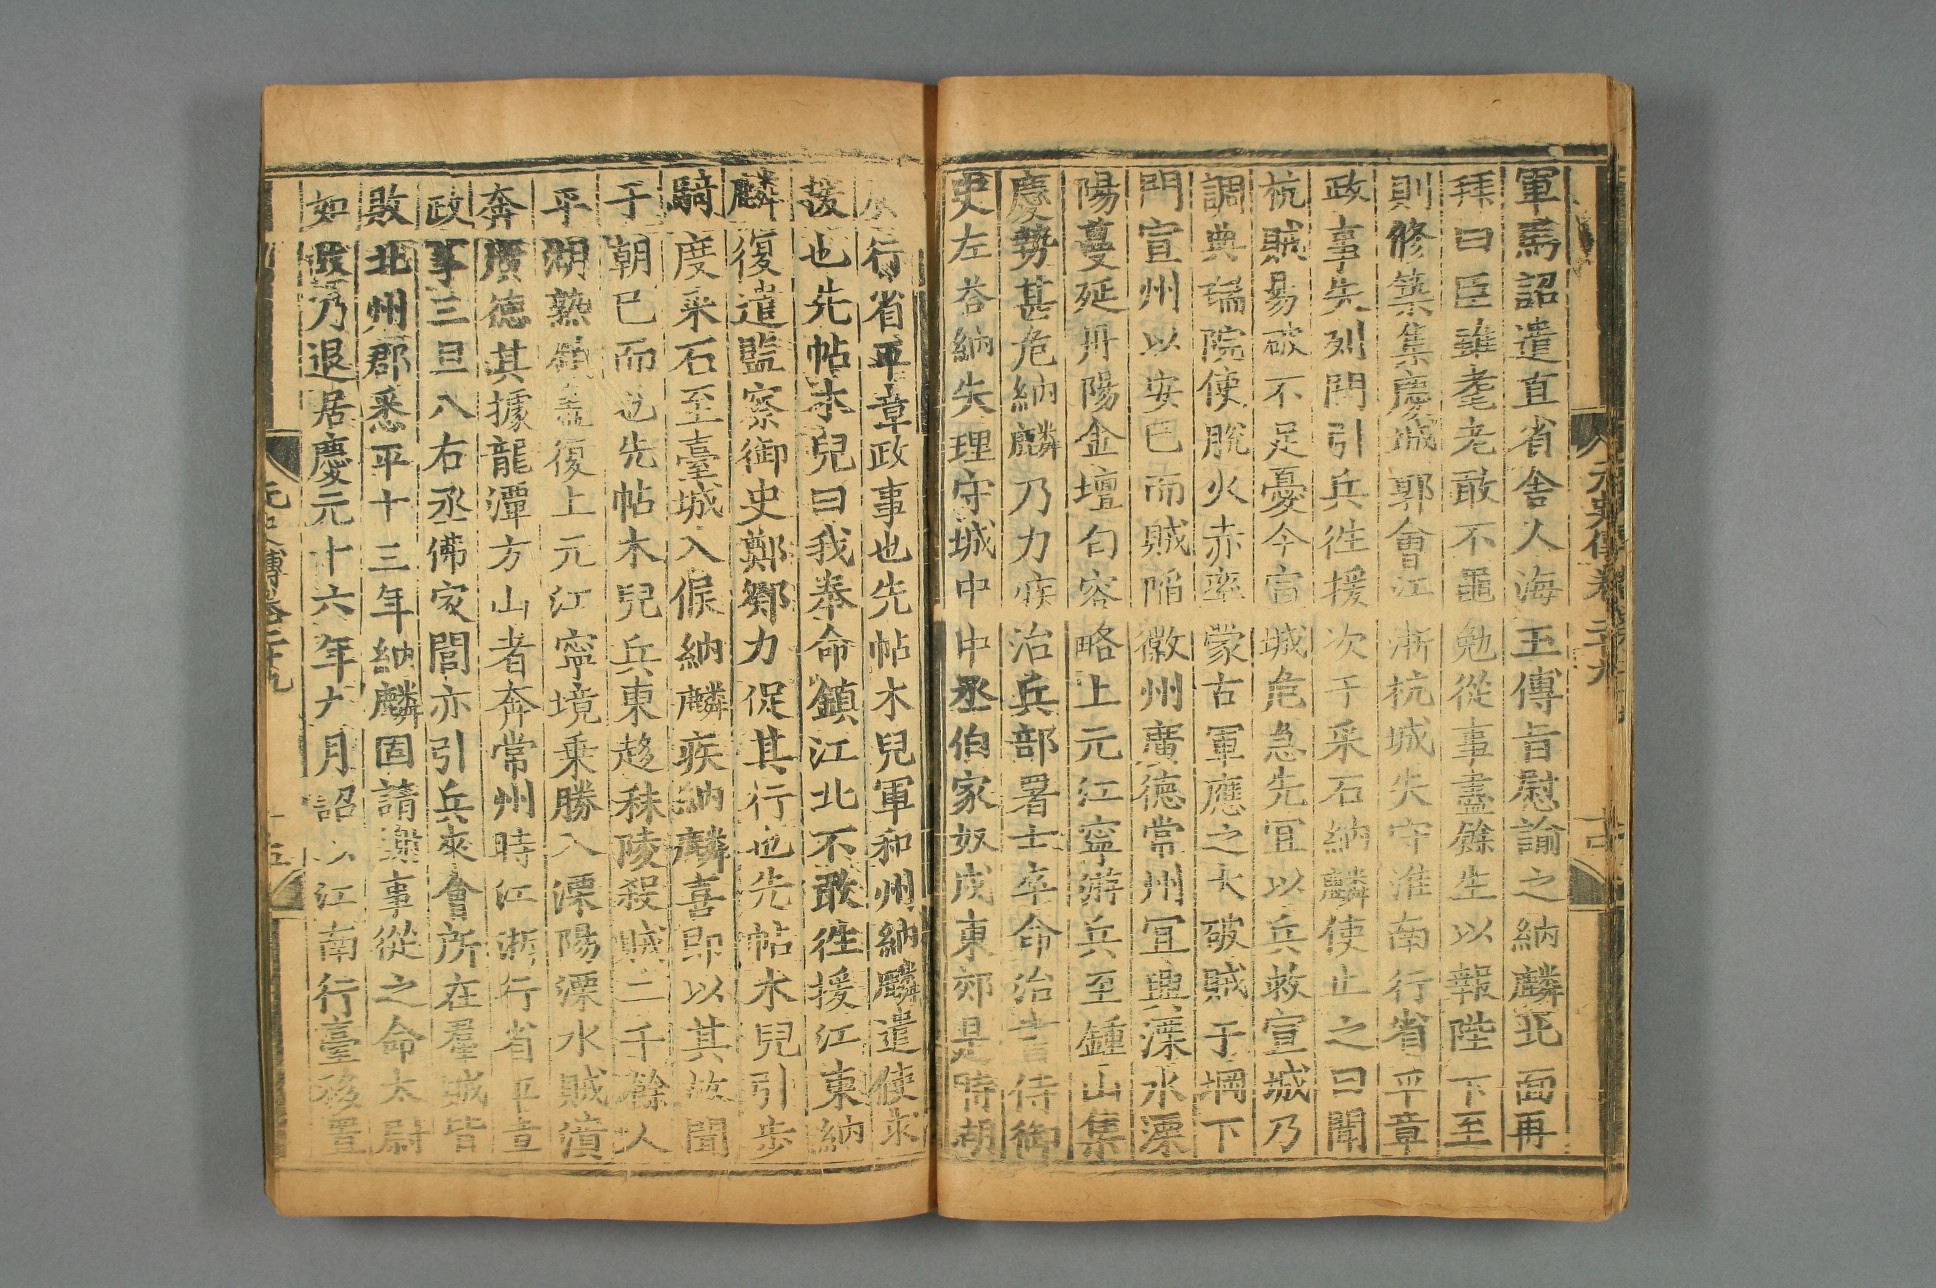 元史傳卷二十九
軍馬詔遣直省舍人海玉傳旨慰諭之納麟北面再
拜曰臣雖耄老敢不黽勉從事盡餘生以報陛下至
則修築集慶城郭會江浙杭城失守淮南行省平章
政事失列門引兵徃援次于采石納麟使止之曰聞
杭賊易破不足憂今宣城危急先宜以兵救宣城乃
調典瑞院使脫火赤率蒙古軍應之大破賊于堈下
門宣州以安已而賊陷徽州廣德常州宜興溧水溧
陽蔓延丹陽金壇句容略上元江寧游兵至鍾山集
慶勢甚危納麟乃力疾治兵部署士卒命治書侍御
史左荅納失理守城中中丞伯家奴戍東郊是時湖
行省平章政事也先帖木兒軍和州納麟遣使求
援也先帖木兒曰我奉命鎮江北不敢徃援江東納
麟復遣監察御史鄭鄒力促其行也先帖木兒引步
騎度采石至臺城入候納麟疾納麟喜即以其故聞
于朝已而也先帖木兒兵東趍秣陵殺賊二千餘人
平湖熟鎮盡復上元江寧境乗勝入溧陽溧水賊潰
奔廣德其據龍潭方山者奔常州時江浙行省平章
政事三旦八右丞佛家閭亦引兵來會所在羣賊皆
敗北州郡悉平十三年納麟固請謝事從之命太尉
如故乃退居慶元十六年九月詔以江南行臺移置
元史傳卷二十九
十五